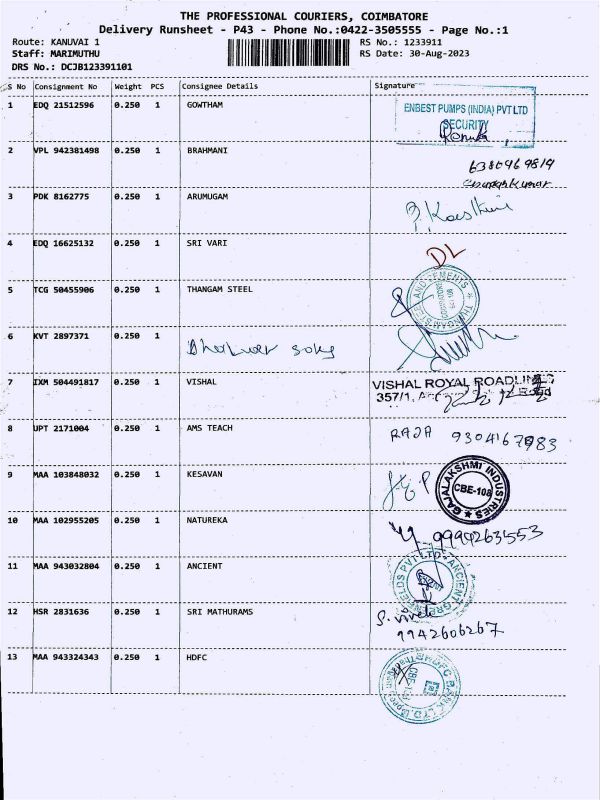 THE PROFESSIONAL COURIERS, COIMBATORE
Delivery Runsheet - P43 - Phone No.:0422-3505555 - Page No.:1
Route: KANUVAI 1 RS No.: 1233911
Staff: MARIMUTHU RS Date: 30-Aug-2023
DRS No.: DCJB123391101
S No Consignment No Weight PCS Consignee Details Signature
1 EDQ 21512596 0.250 1 GOWTHAM
ENBEST PUMPS (INDIA) PVT LTD
SECURITY
2 VPL 942381498 0.250 1 BRAHMANI
3 PDK 8162775 0.250 1 ARUMUGAM
4 EDQ 16625132 0.250 1 SRI VARI
DL
5 TCG 50455906 0.250 1 THANGAM STEEL
6 KVT 2897371 0.250 1
7 IXM 504491817 0.250 1 VISHAL
VISHAL ROYAL ROADLINES
357/1,
8 UPT 2171004 0.250 1 AMS TEACH
RAJA
9 MAA 103848032 0.250 1 KESAVAN
GAJALAKSHMI INDUSTRIES
CBE-108
10 MAA 102955205 0.250 1 NATUREKA
11 MAA 943032804 0.250 1 ANCIENT
12 HSR 2831636 0.250 1 SRI MATHURAMS
9942606267
13 MAA 943324343 0.250 1 HDFC